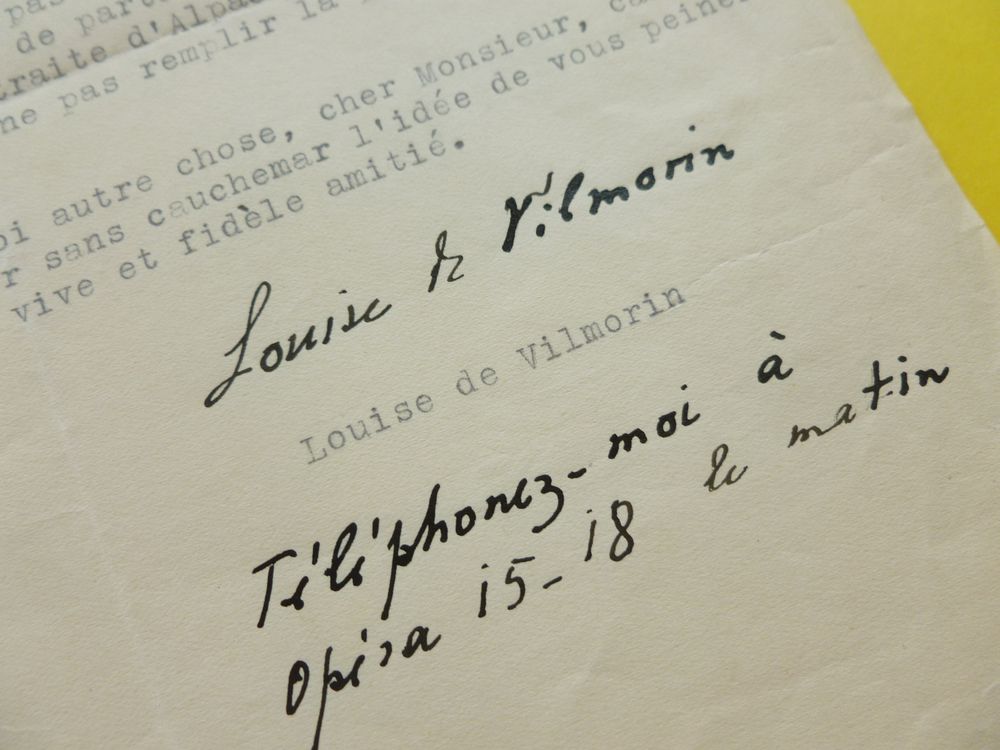 pas
de part
traite d'Alpa
ne pas remplir la
oi autre chose, cher Monsieur, ca
r sans cauchemar l'idée de vous peiner
vive et fidèle amitié.
Louise de Vilmorin
Louise de Vilmorin
Téléphonez-moi à
Opéra 15-18 le matin